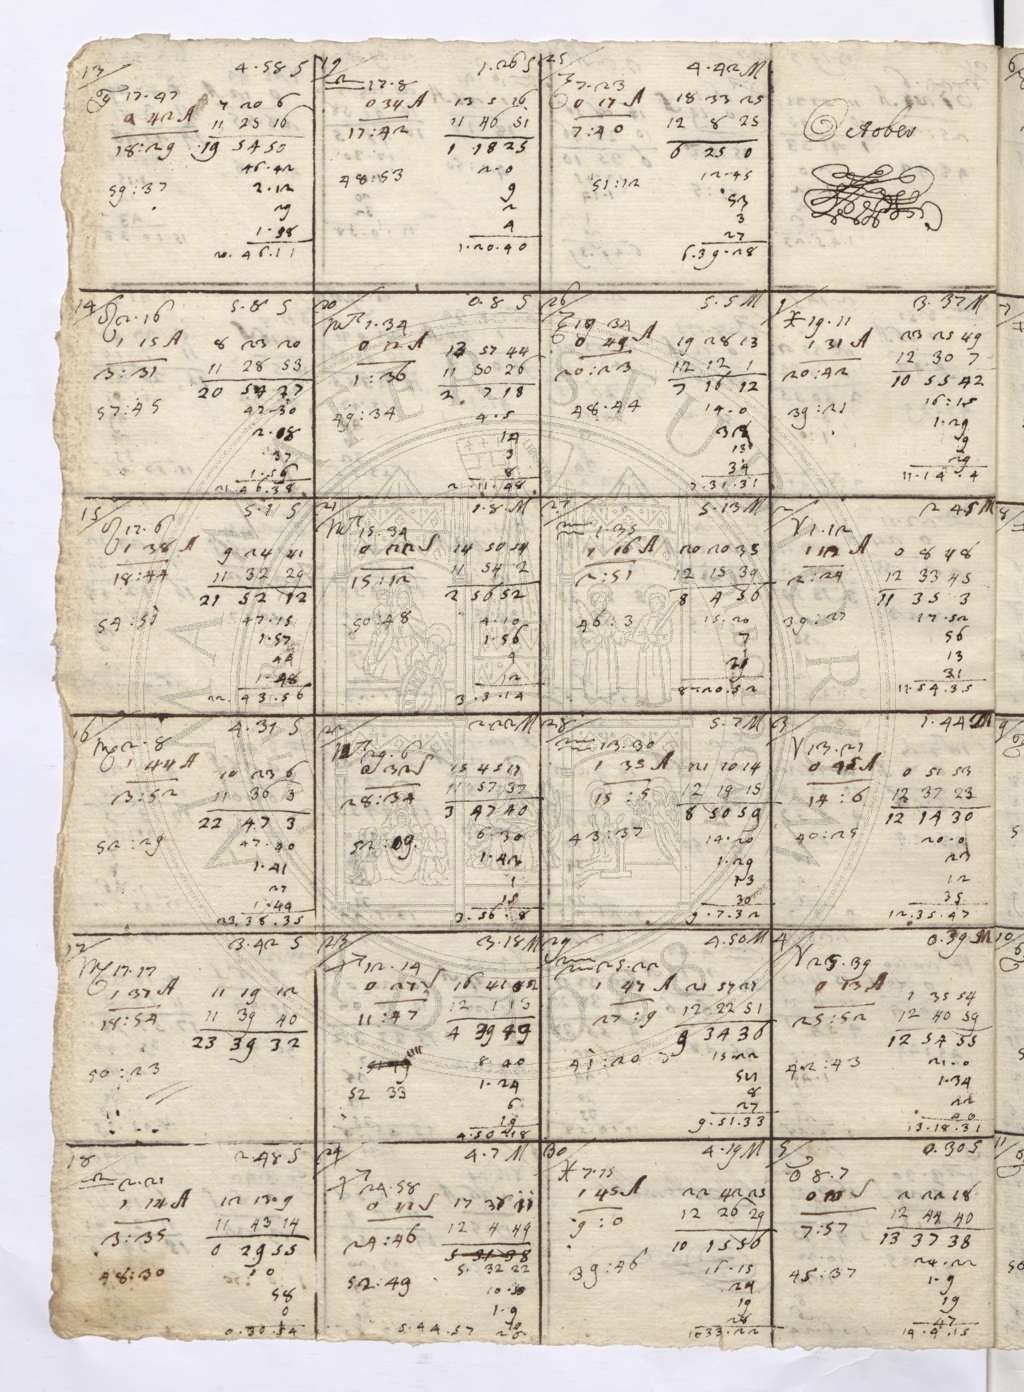 13
4.58 S
♉ 17.47
0 42 A
7 20 6
11 25 16
18:29
19 54 50
46.42
59:37
2.12
29
1.38
20.46.11
19
1.26 S
♎ 17.8
0 34 A
13 5 16
11 46 51
17:42
1 18 25
48:53
2.0
9
2
4
1.20.40
25
4.42 M
7.23
0 17 A
18 33 25
12 8 25
7:40
6 25 0
51:12
12.45
52
3
27
6.39.28
October
14
5.8 S
♌ 2.16
1 15 A
8 23 20
11 28 53
3:31
20 54 27
57:45
47.30
2.08
37
1.56
21.46.38
20
0.8 S
♏ 1.34
0 12 A
13 57 44
11 50 26
1:36
2 7 18
49:34
4.5
14
3
8
2.11.48
26
5.5 M
19 34
0 49 A
19 28 13
12 12 1
20:23
7 16 12
48.44
14.0
13
34
7.31.31
1
3.37 M
♓ 19.11
1 31 A
23 25 49
12 30 7
20:42
10 55 42
39:21
16:15
1.29
9
29
11.14.4
15
5.1 S
♌ 17.6
1 38 A
9 24 41
11 32 29
18:44
21 52 12
54:51
47.15
1.57
44
1.48
22.43.56
21
1.8 M
♏ 15.34
0 22 S
14 50 54
11 54 2
15:12
2 56 52
50:48
4.10
1.56
4
12
3.3.14
27
5.13 M
♒ 1.35
1 16 A
20 20 35
12 15 39
2:51
8 4 56
46:3
15.20
7
8.20.52
2
2 45 M
♈ 1.12
1 12 A
0 8 48
12 33 45
2:24
11 35 3
39:27
17.52
56
13
31
11.54.35
16
4.31 S
♍ 2.8
1 44 A
10 23 6
11 36 3
3:52
22 47 3
52:29
47.40
1.41
27
1.44
23.38.35
22
2.22 M
29.6
0 32 S
15 45 17
11 57 37
28:34
3 47 40
52:09
6.30
1.42
1
15
3.56.8
28
5.7 M
♒ 13:30
1 35 A
21 10 14
12 19 15
15:5
8 50 59
43:37
14.20
1.29
13
30
9.7.32
3
1.44 M
♈ 13.21
0 45 A
0 51 53
12 37 23
14:6
12 14 30
40:25
20.0
23
12
35
12.35.47
17
3.42 S
♍ 17.17
1 37 A
11 19 12
11 39 40
18:54
23 39 32
50:23
23
3.18 M
♐ 12.14
0 27 S
12 1 13
11:47
4 39 49
8.40
52 33
1.24
6
19
4.50.18
29
4.50 M
♒ 25.22
1 47 A
21 57 27
12 22 51
27:9
9 34 36
41:20
15.22
52
8
27
9.51.33
4
0.39 M
♈ 25.39
0 13 A
1 35 54
12 40 59
25:52
12 54 55
42:43
21.0
1.34
22
40
13.18.31
18
2.48 S
♎ 2.21
1 14 A
12 13.9
11 43 14
3:35
0 29 55
48:30
10
58
0
0.30.54
24
4.7 M
♐ 24.58
0 12 S
12 4 49
24:46
5 31 38
5. 32 22
52:49
10.50
1.9
5.44.57
30
4.19 M
♓ 7.15
1 45 A
22 42 25
12 26 29
9:0
10 15 56
39:46
16.15
24
19
26
10 33.22
5
0.30 S
♉ 8.7
2 22 18
12 44 40
7:57
13 37 38
45:37
24.22
1.9
19
47
14.4.15